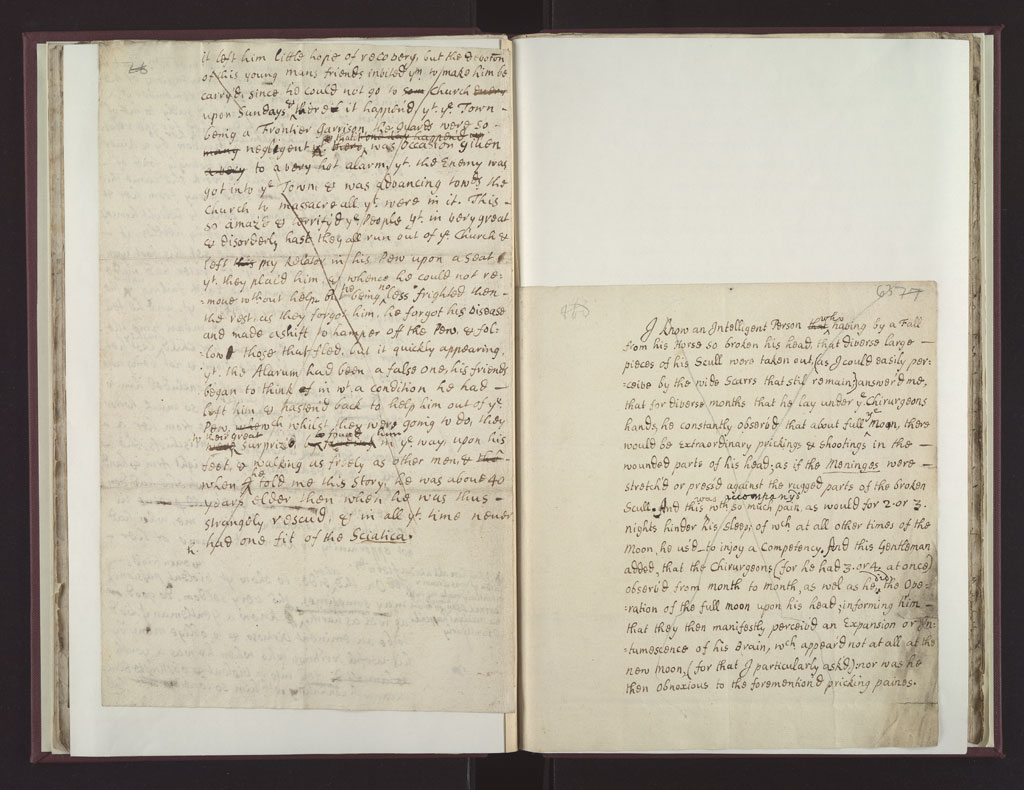 it left him little hope of recovery, but the devotõn
of his young mans friends invited ym to make him be
carry'd, since he could not go to Church
upon Sundays, there it happen'd, yt ye Town -
being a Frontier Garrison, the Guards were so -
negligent yt there was occasion given
to a very hot alarm, yt the Enemy was
got into ye Town, & was advancing towds the
Church to massacre all yt were in it. This -
so amaz'd & terrify'd ye People yt in very great
& disorderly hast they all run out of ye Church &
left my Relator in his Pew upon a Seat
yt they plac'd him, whence he could not re=
=move without help. but he being no less frighted then -
the rest, as they forgot him, he forgot his Disease
and made a shift to hamper off the Pew, & fol-
low those that fled, but it quickly appearing,
yt the Alarum had been a false one, his friends
began to think of in wt a condition he had -
left him & hasten'd back to help him out of ye
Pew, wch whilst they were going to do, they
to their great surprize found him in ye way upon his
feet, & walking as freely as other men; &
when he told me this story, he was above 40
years elder then when he was thus -
strangely rescu'd, & in all yt time never
had one fit of the Sciatica.
I know an Intelligent Person who having by a Fall
from his Horse so broken his head, that diverse large -
pieces of his Scull were taken out, (as I could easily per-
=ceive by the wide Scarrs that stil remain) answer'd me,
that for diverse months that he lay under ye Chirurgeons
hands, he constantly observ'd that about ye full Moon, there
would be Extraordinary prickings & shootings in the -
wounded parts of his head, as if the Meninges were -
stretch'd or press'd against the rugged parts of the broken
Scull. And this was accompany'd wth so much pain, as would for 2 or 3.
nights hinder his sleep; of wch at all other times of the
Moon, he us'd to injoy a Competency. And this Gentleman
added, that the Chirurgeons (for he had 3. or 4. at once)
observ'd from month to month, as wel as he did, the Ope=
=ration of the full moon upon his head; informing him -
that they then manifestly perceiv'd an Expansion or In-
=tumescence of his Brain, wch appear'd not at all at the
new Moon, (for that I particularly ask'd) nor was he
then Obnoxious to the foremention'd pricking paines.